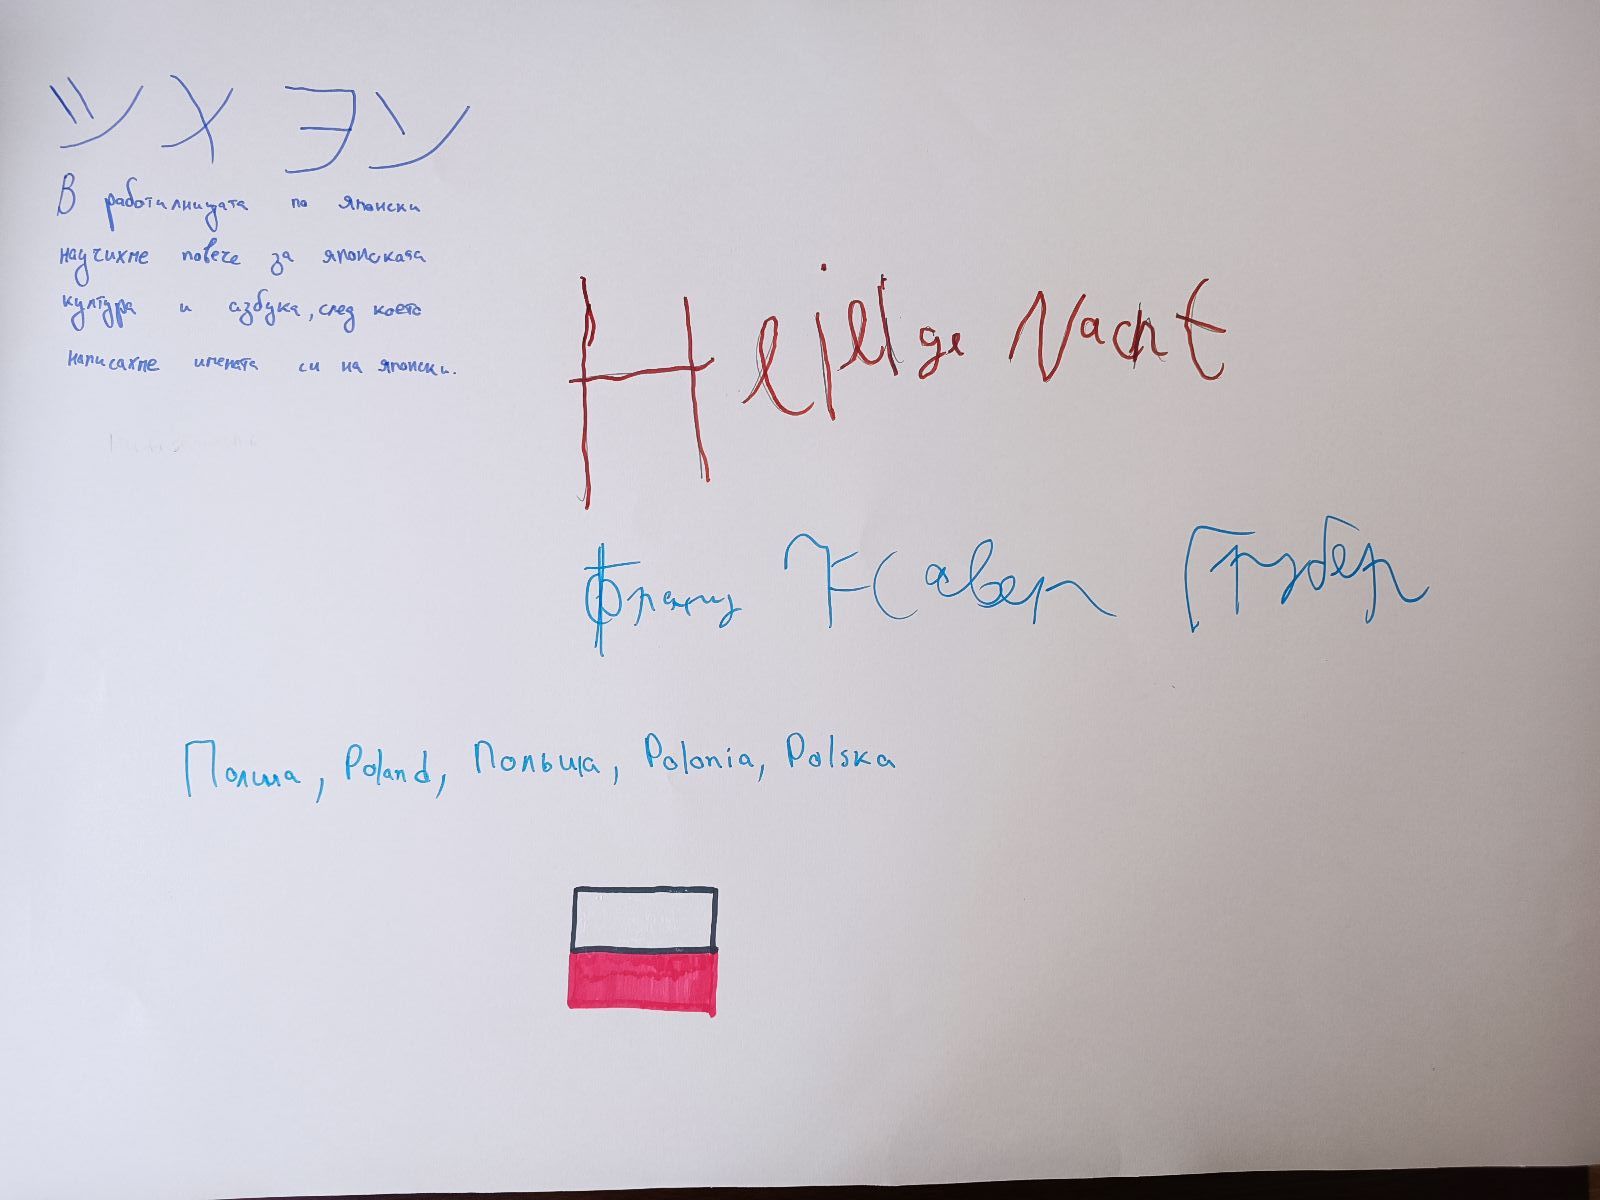 ツメヨン
В работилницата по Японски
научихме повече за японската
култура и азбука, след което
написахме имената си на японски.
Heilge Nacht
Франц Ксавер Грубер
Полша, Poland, Польща, Polonia, Polska